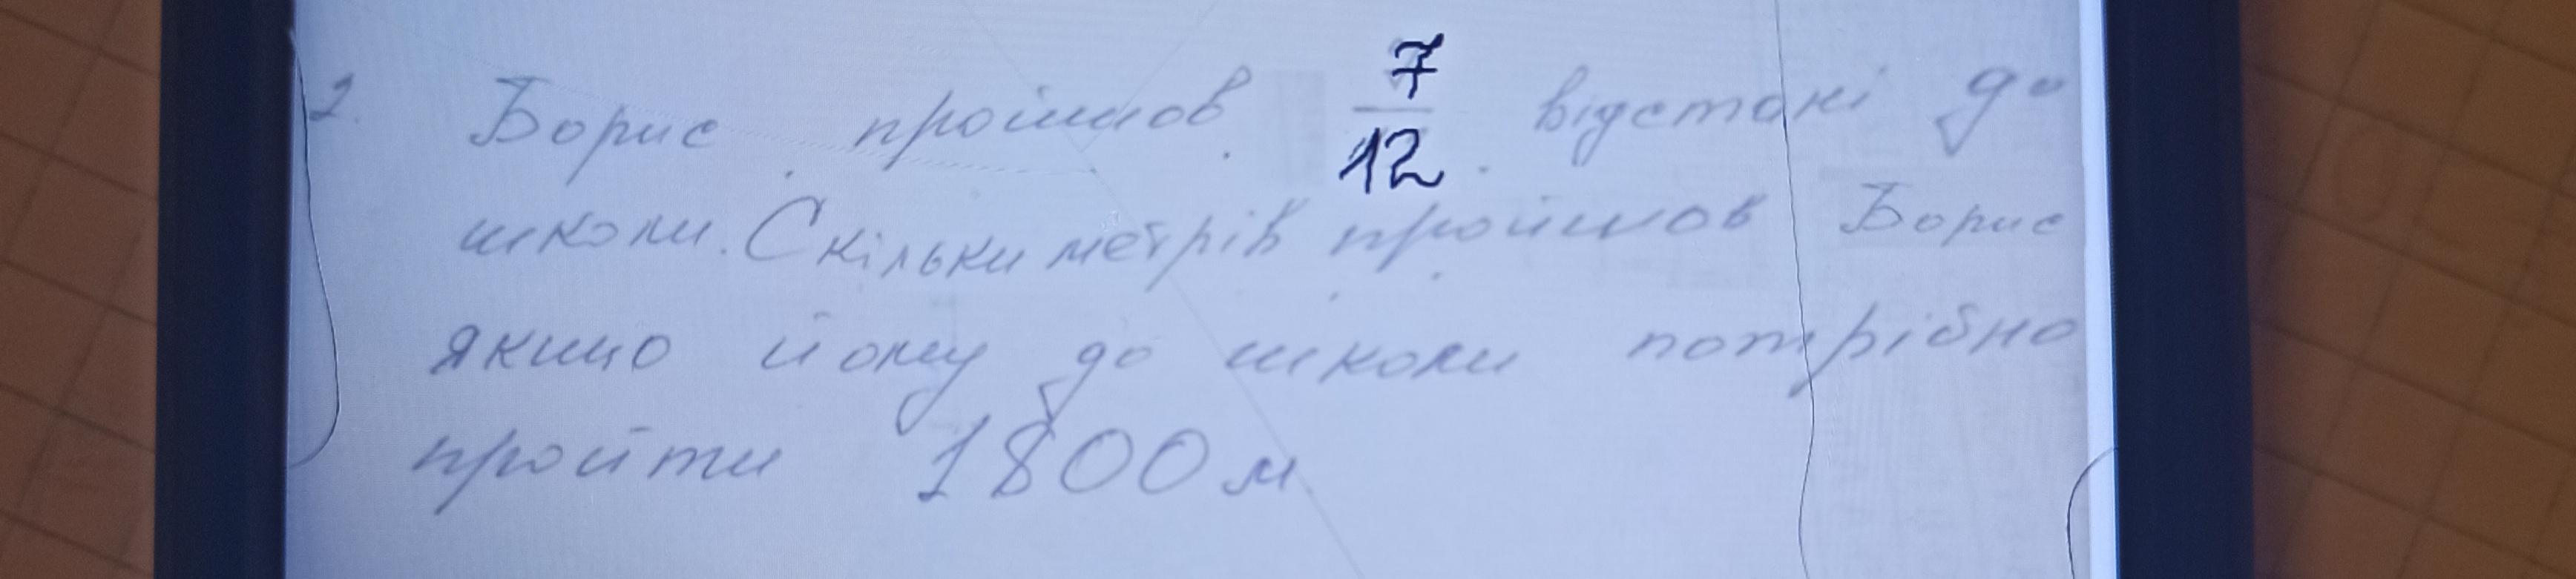 2. Борис пройшов 7/12 відстані до
школи. Скільки метрів пройшов Борис
якщо йому до школи потрібно
пройти 1800 м